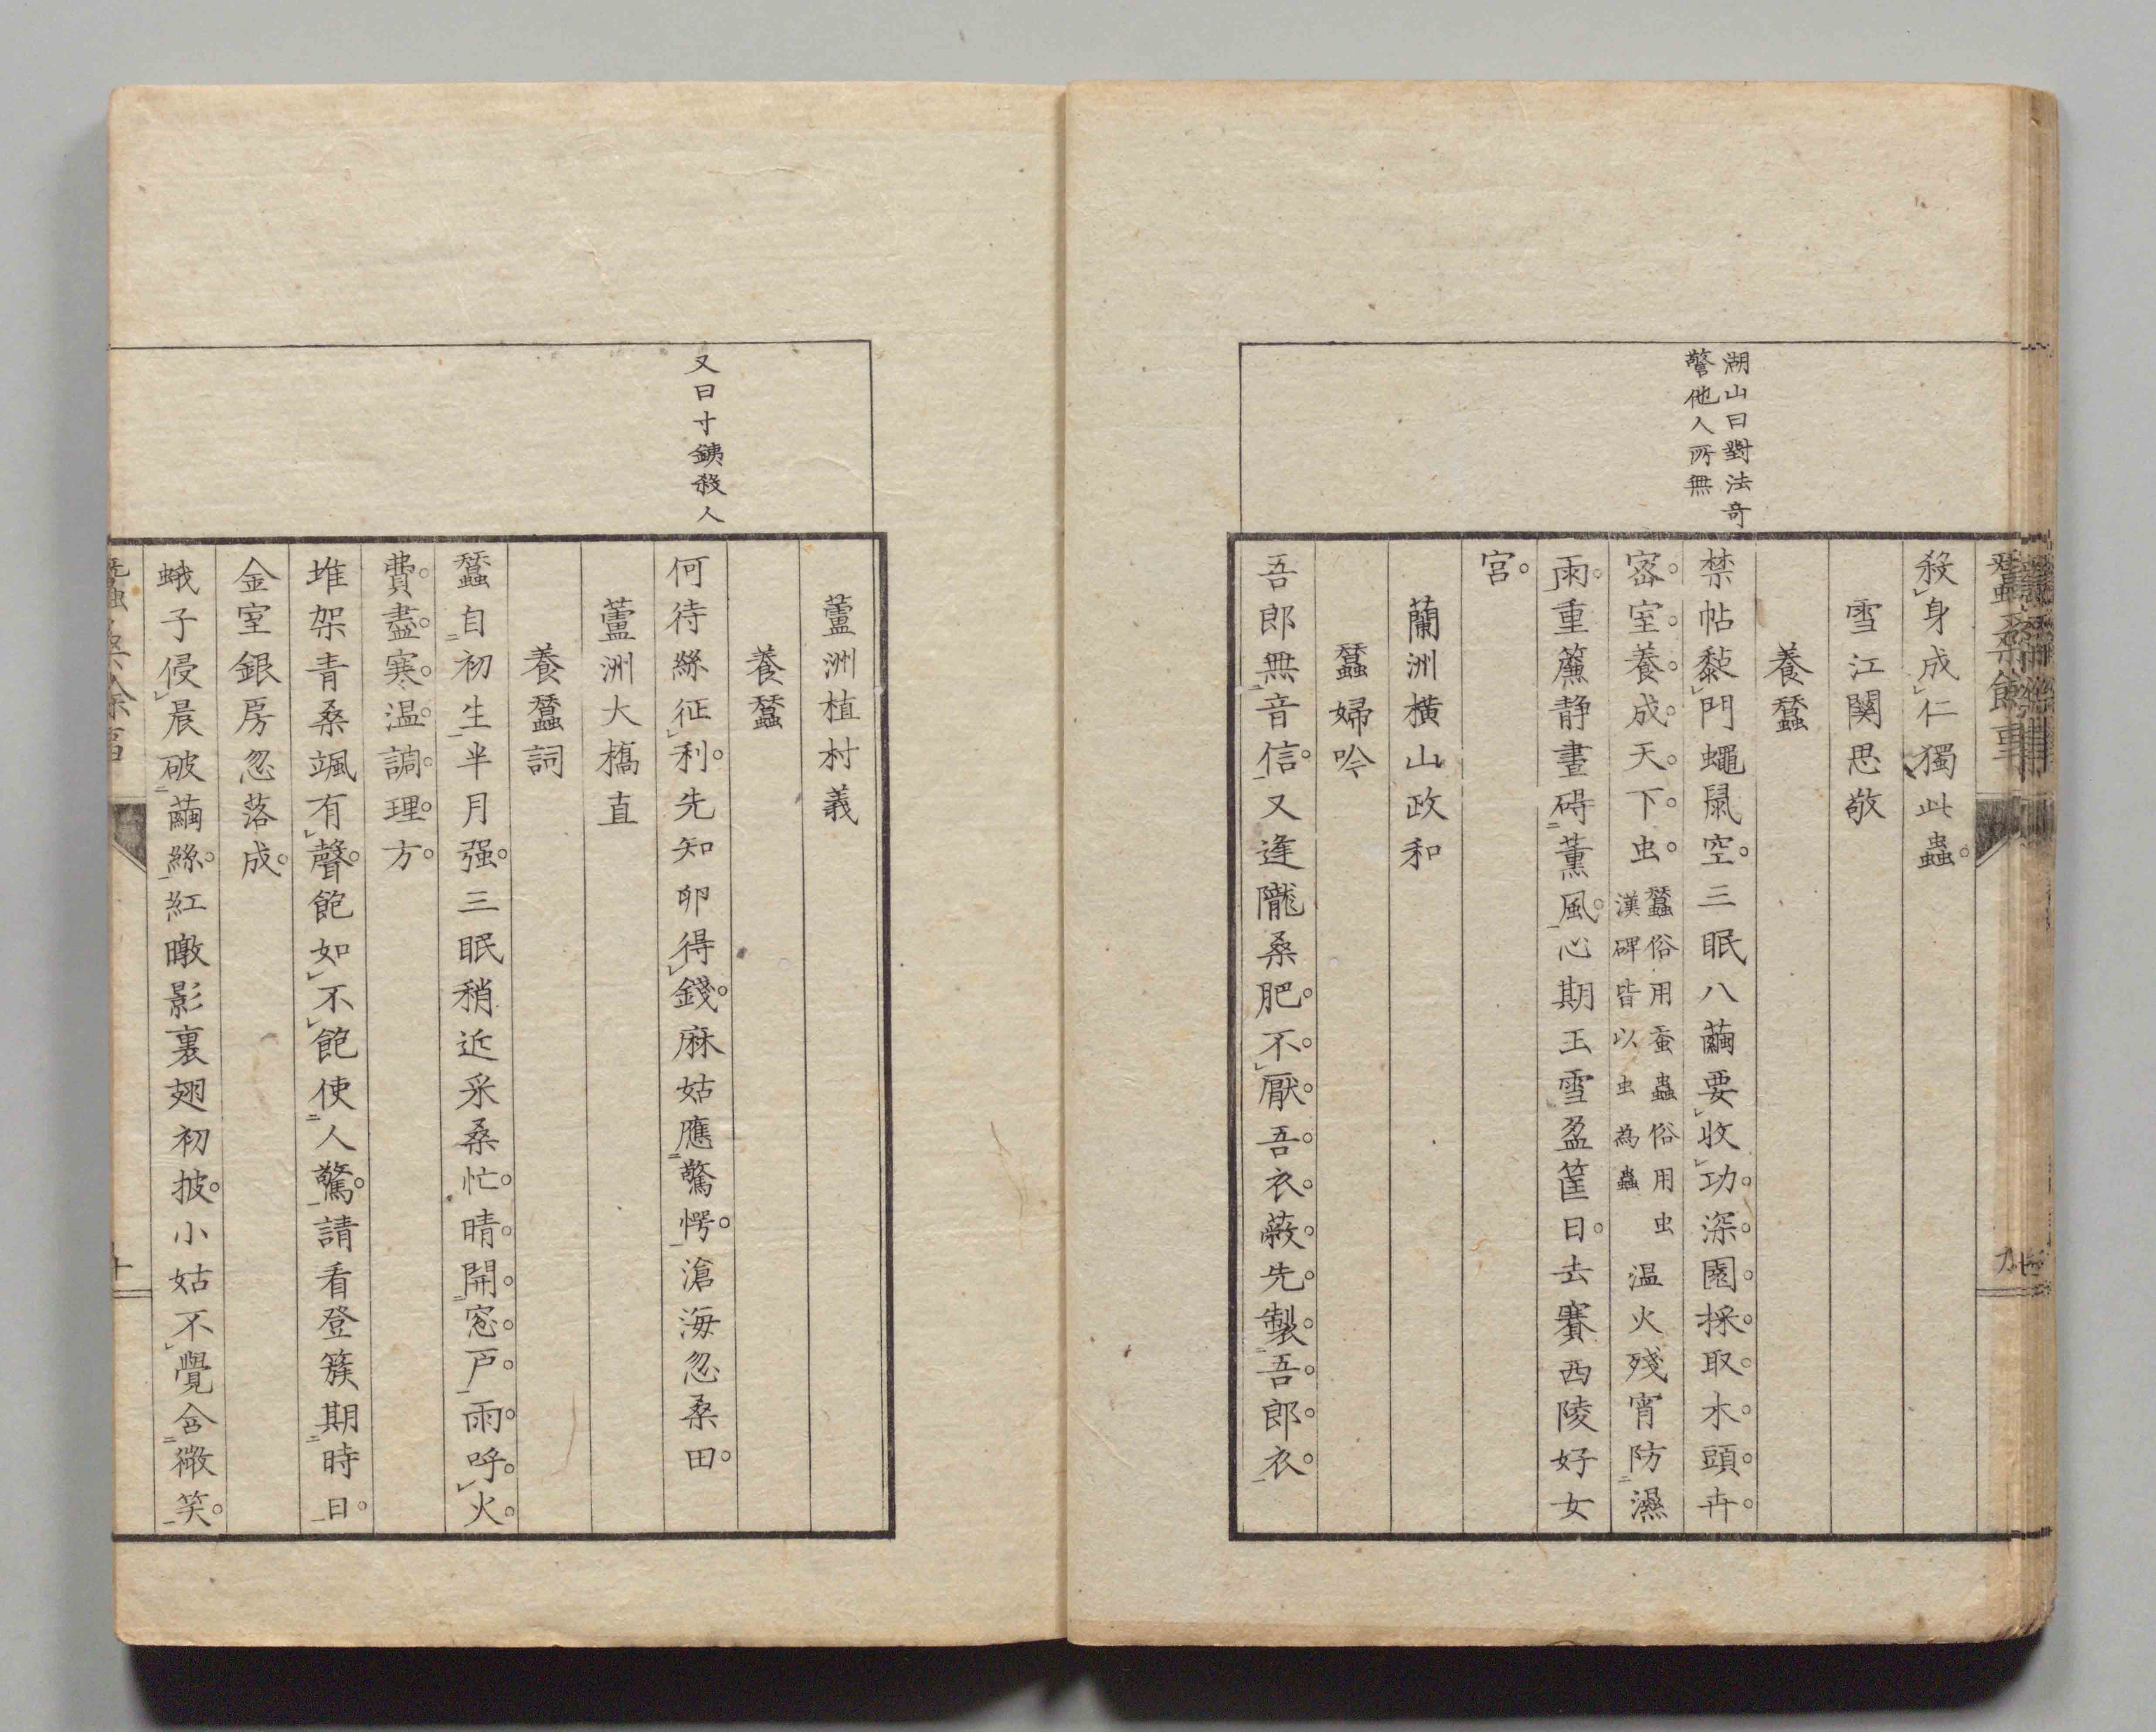 湖山曰對法奇
警他人所無
殺身成仁獨此蟲。
雪江関思敬
養蠶
禁帖黏門蠅鼠空。三眠八繭要收功。深園採取木頭卉。
密室養成天下虫。蠶俗用蚕蟲俗用虫
漢碑皆以虫為蟲
温火殘宵防濕
雨。重簾静晝碍薫風。心期玉雪盈筐日。去賽西陵好女
宮。
蘭洲横山政和
蠶婦吟
吾郎無音信。又逢隴桑肥。不厭吾衣蔽。先製吾郎衣。
又曰寸銕殺人
蘆洲植村義
養蠶
何待絲征利。先知卵得錢。麻姑應驚愕。滄海忽桑田。
蘆洲大槗直
養蠶詞
蠶自初生半月强。三眠稍近采桑忙。晴開窓戸雨呼火。
費盡寒温調理方。
堆架青桑颯有聲。飽如不飽使人驚。請看登簇期時日。
金室銀房忽落成。
蛾子侵晨破繭絲。紅暾影裏翅初披。小姑不覺含微笑。
十